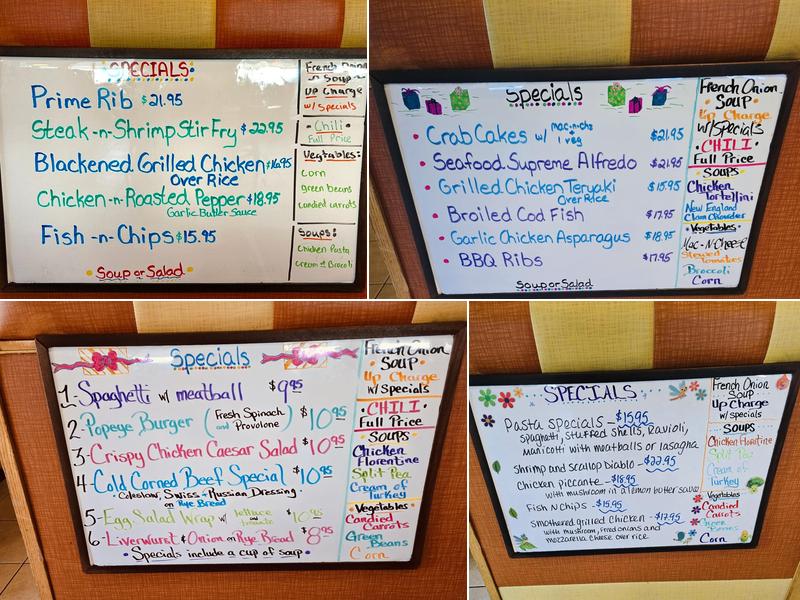 SPECIALS
Prime Rib $21.95
Steak-n-Shrimp Stir Fry $22.95
Blackened Grilled Chicken $16.95
Over Rice
Chicken-n-Roasted Pepper $18.95
Garlic Butter Sauce
Fish-n-Chips $15.95
Soup or Salad
French Onion
Soup
Up Charge
w/ Specials
Chili
Full Price
Vegtables:
corn
green beans
candied carrots
Soups:
Chicken Pasta
Cream of Brocoli
Specials
• Crab Cakes w/ mac-n-chs $21.95
1 veg
• Seafood Supreme Alfredo $21.95
• Grilled Chicken Teryaki $15.95
Over Rice
• Broiled Cod Fish $17.95
• Garlic Chicken Asparagus $18.95
• BBQ Ribs $17.95
Soup or Salad
French Onion
SOUP
Up Charge
w/Specials
• CHILI •
Full Price
SOUPS
Chicken
Tortellini
New England
Clam Chowder
Vegetables
Mac-N-Cheese
Stewed
Tomatoes
Broccoli
Corn
Specials
1. Spaghetti w/ meatball $9.95
2. Popeye Burger (Fresh Spinach and Provolone) $10.95
3- Crispy Chicken Caesar Salad $10.95
4- Cold Corned Beef Special $10.95
• Coleslaw, Swiss + Russian Dressing •
on Rye Bread
5- Egg Salad Wrap w/ lettuce and tomato $10.95
6- Liverwurst & Onion on Rye Bread $8.95
• Specials include a cup of soup •
French Onion
SOUP
Up Charge
w/Specials
• CHILI •
Full Price
SOUPS
Chicken
Florentine
Split Pea
Cream of
Turkey
Vegetables
Candied
Carrots
Green
Beans
Corn
SPECIALS
Pasta Specials - $15.95
spaghetti, stuffed shells, Ravioli,
manicotti with meatballs or lasagna
Shrimp and scallop Diablo - $22.95
Chicken piccante - $18.95
with mushroom in a lemon butter sauce
Fish N Chips - $15.95
Smothered grilled chicken - $17.95
with mushroom, fried onions and
mozzarella cheese over rice
French Onion
Soup
Up Charge
w/ specials
SOUPS
Chicken Florentine
Split Pea
Cream of
Turkey
Vegetables
Candied
Carrots
Green
Beans
Corn